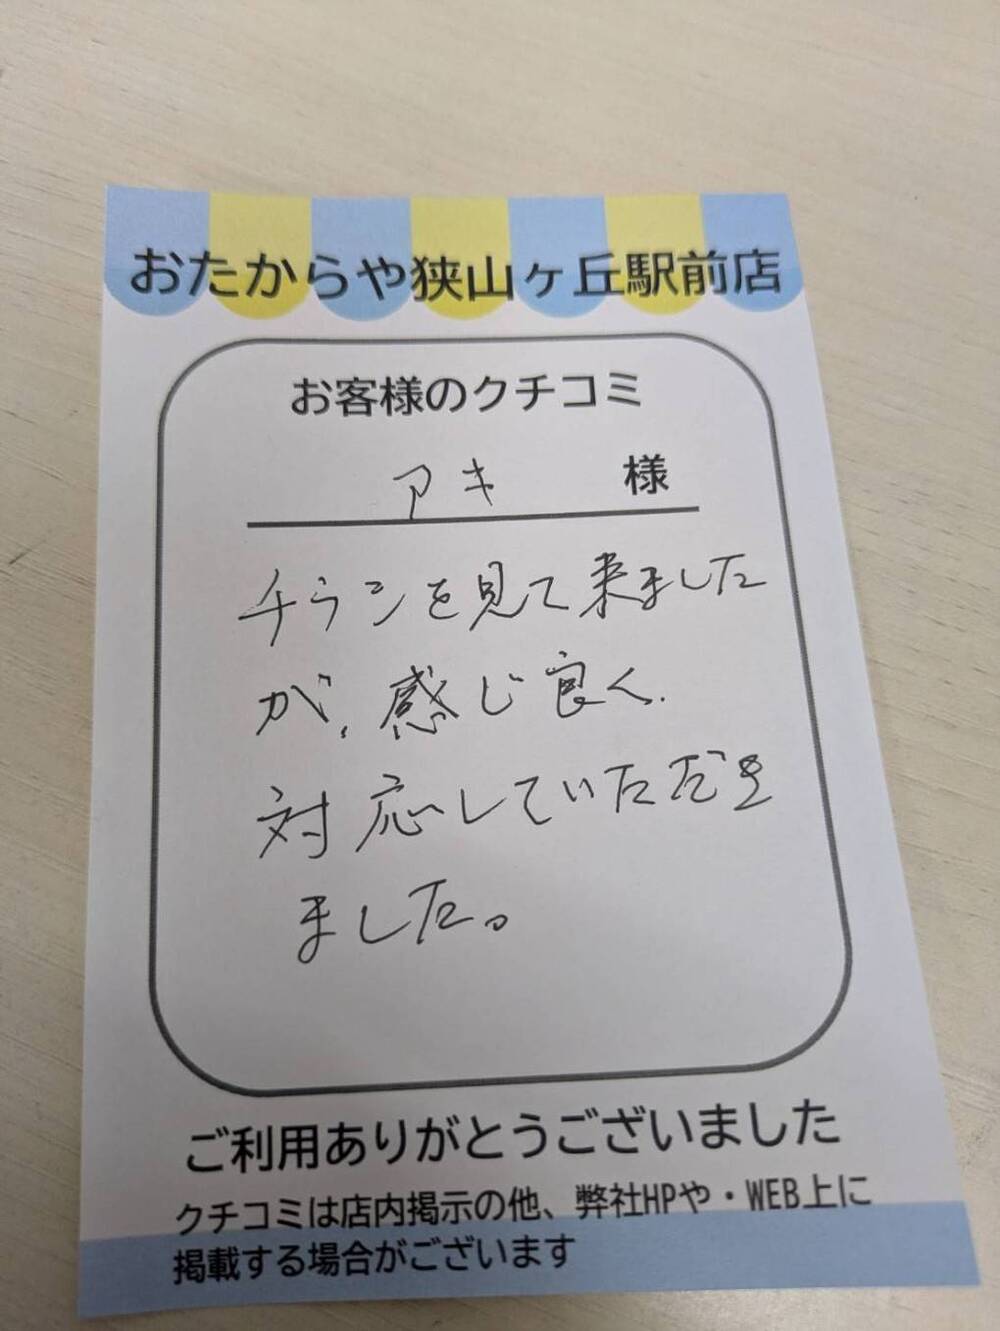 おたからや狭山ヶ丘駅前店
お客様のクチコミ
アキ 様
チラシを見て来ました
が、感じ良く、
対応していただき
ました。
ご利用ありがとうございました
クチコミは店内掲示の他、弊社HPや・WEB上に
掲載する場合がございます